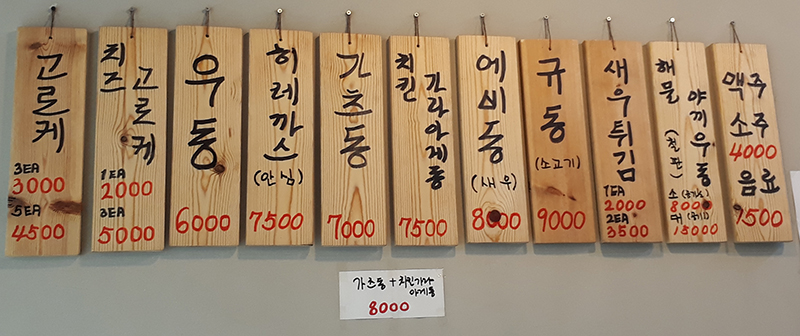 고로케
3EA
3000
5EA
4500
치즈
고로케
1EA
2000
3EA
5000
우동
6000
히레까스
(안심)
7500
가츠동
7000
치킨
가라아게동
7500
에비동
(새우)
8000
규동
(소고기)
9000
새우튀김
1EA
2000
2EA
3500
해물
야끼우동
(철판)
소
8000
대
15000
맥주
소주
4000
음료
1500
가츠동 + 치킨가라
아게동
8000